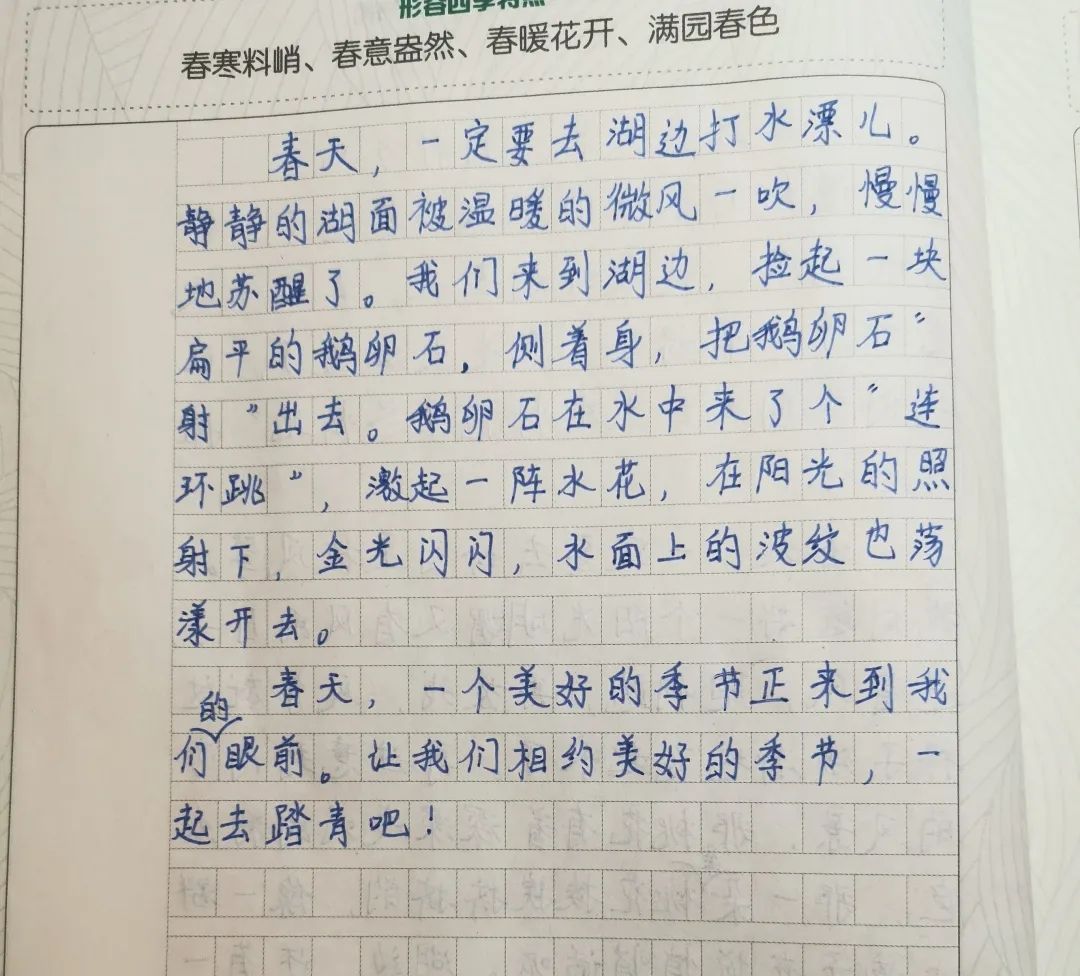 形容四季特点
春寒料峭、春意盎然、春暖花开、满园春色
春天，一定要去湖边打水漂儿。
静静的湖面被温暖的微风一吹，慢慢
地苏醒了。我们来到湖边，捡起一块
扁平的鹅卵石，侧着身，把鹅卵石“
射”出去。鹅卵石在水中来了个“连
环跳”，激起一阵水花，在阳光的照
射下，金光闪闪，水面上的波纹也荡
漾开去。
春天，一个美好的季节正来到我
们的眼前。让我们相约美好的季节，一
起去踏青吧！